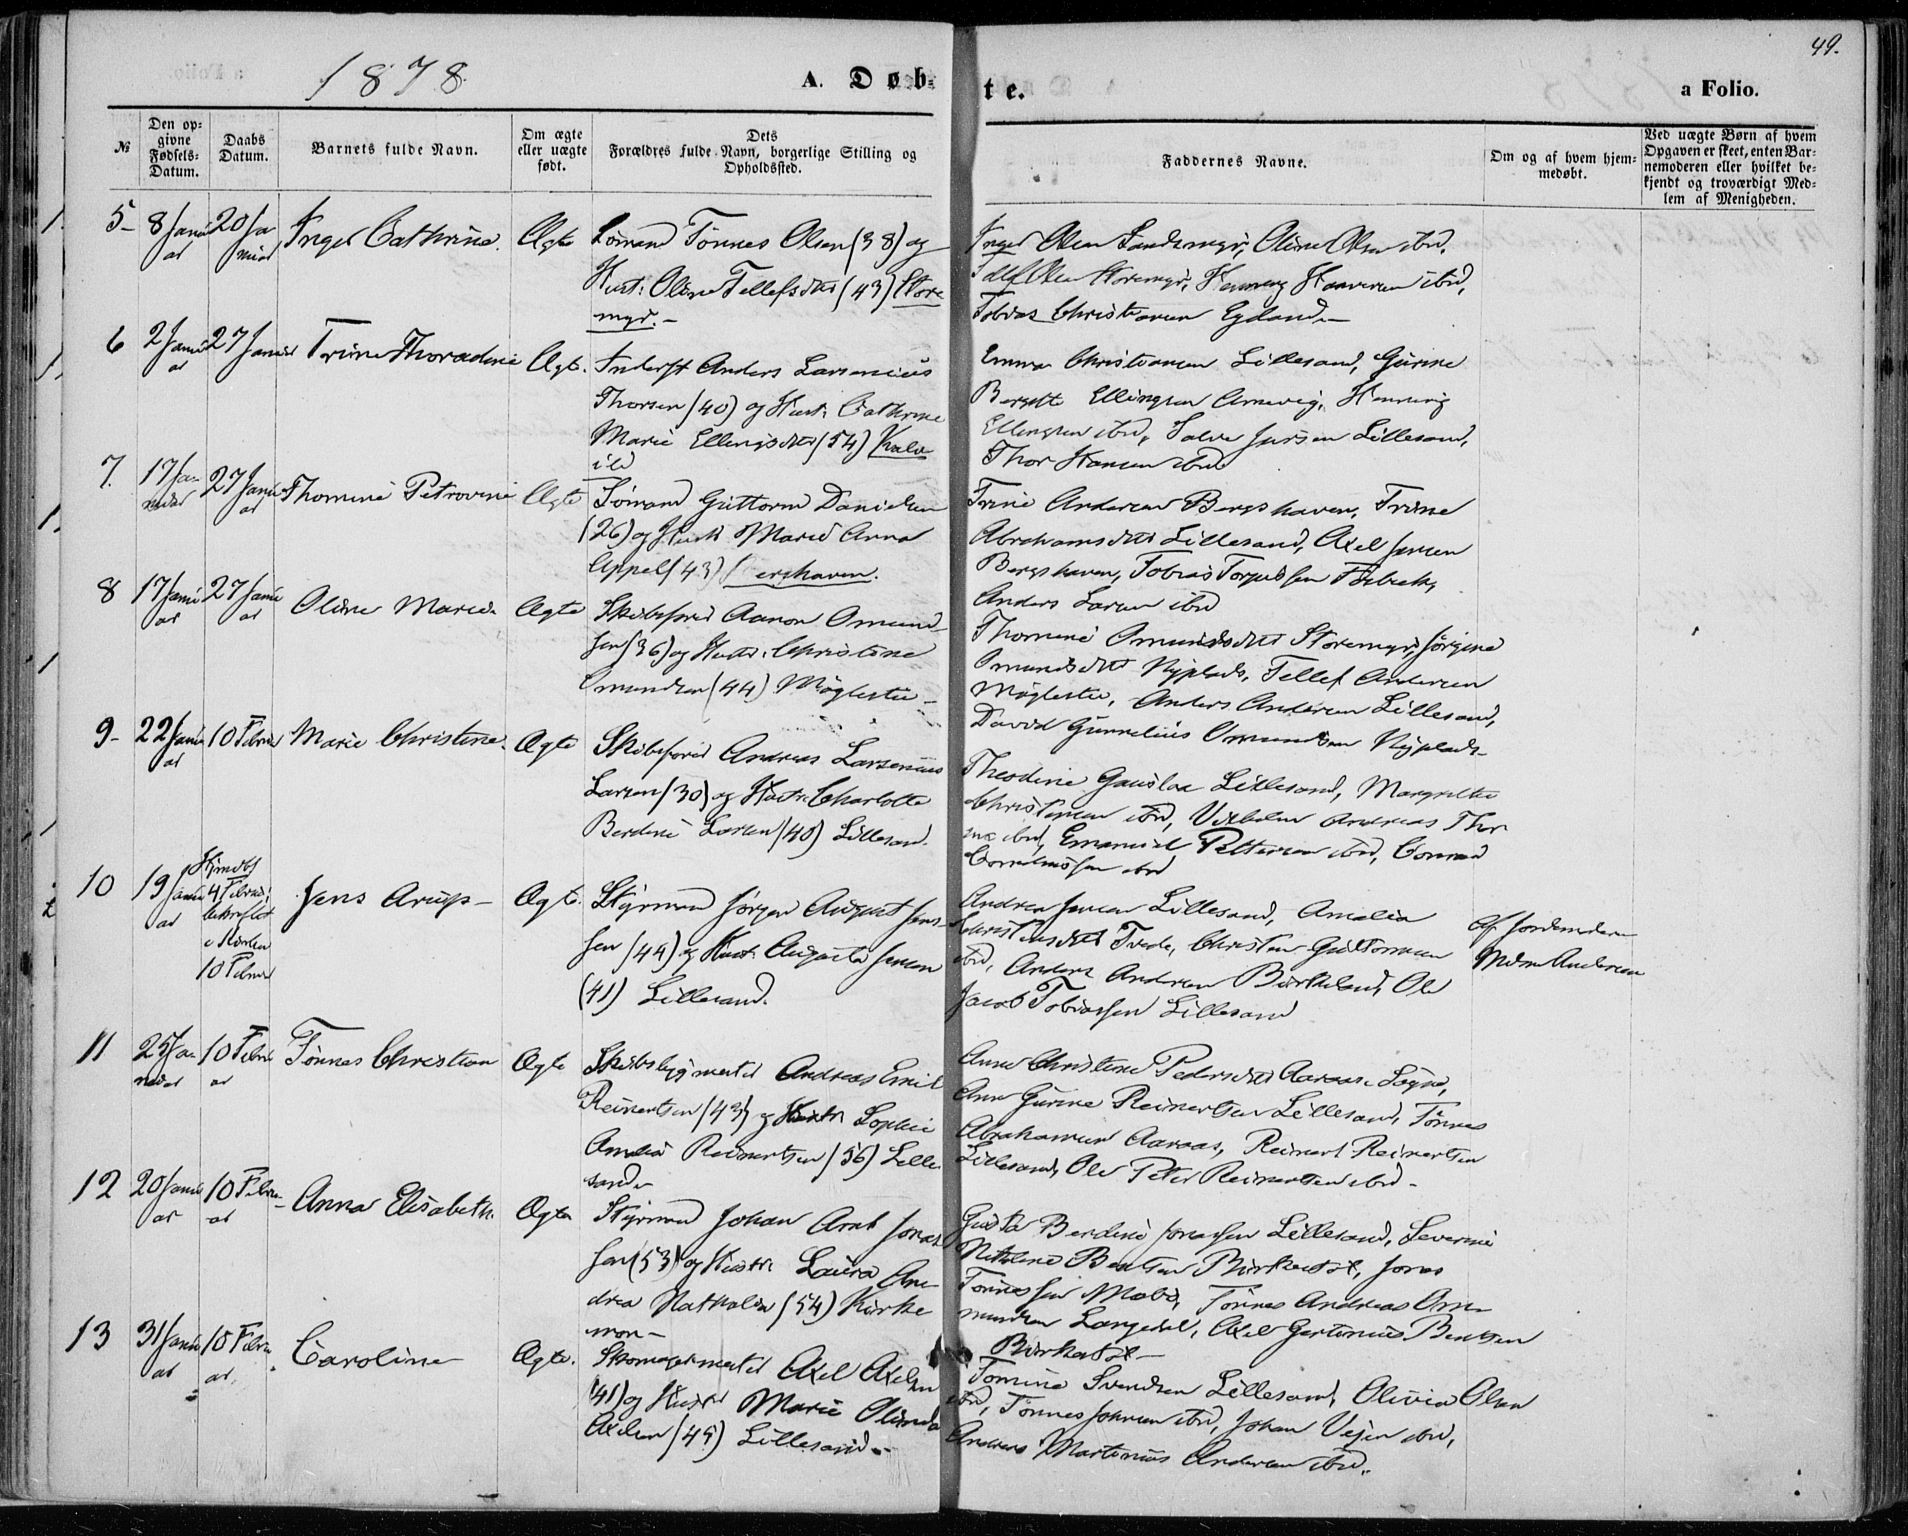 1878
A. Døb-
te.
a Folio.
49.
№
Den op-
givne
Fødsels-
Datum.
Daabs
Datum.
Barnets fulde Navn.
Om ægte
eller uægte
født.
Dets
Forældres fulde Navn, borgerlige Stilling og
Opholdssted.
Faddernes Navne.
Om og af hvem hjem-
medøbt.
Ved uægte Børn af hvem
Opgaven er skeet, enten Bar-
nemoderen eller hvilket be-
kjendt og troværdigt Med-
lem af Menigheden.
5 8 Janu
ar
20 Ja
nuar
Inger Cathrine Ægte
Sømand Tønnes Olsen (38) og
Hust: Oline Tellefsdtr (43) Store
myr.
Inger Olsen Sandemyr, Oline Olsen ibd,
Olsen Storemyr, Henning ibd,
Tobias Christensen Egeland
6 2 Janu
ar
27 Januar
Trine Thoradine Ægt.
Inderst Anders Larsenius
Thorsen (40) og Hust: Cathrine
Marie Ellingsdtr (54) Kale
ild
Emma Christensen Lillesand, Gurine
Bergitte Ellingsen Arnevig, Henning
Ellingsen ibd, Salve Jensen Lillesand,
Thor Hansen ibd
7. 17 Ja-
nuar
27 Janu
ar
Thomine Petrovine Ægte
Sømand Guttorm Danielsen
(26) og Hust. Marie Anna
Appel (43) Bergshaven.
Trine Andersen Bergshaven, Trine
Abrahamsdtr Lillesand, Axel Jensen
Bergshaven, Tobias Torjussen
Anders Larsen ibd
8 17 Janu
ar
27 Janu
ar
Oline Marie Ægte
Skibsfører Aanon Omund
sen (36) og Hustr: Christine
Omundsen (44) Møglestu
Thomine Omundsdtr Storemyr, Jørgine
Omundsdtr Nyplads, Tellef Andersen
Møglestu, Anders Andersen Lillesand,
David Gunnelius Omundsen Nyplads
9 22 Janu
ar
10 Februar
Marie Christine Ægte
Skibsfører Andreas Larsenius
Larsen (30) og Hustr: Charlotte
Berdine Larsen (40) Lillesand.
Theodine Gauslaa Lillesand, Margrethe
Christensen ibd, Vilhelm Andreas Thor
ibd, Emanuel Pettersen ibd, Conrad
Corneliussen ibd
10 19 Janu
ar
Hjmdbt
4 Februar
bekræftet
i Kirken
10 Februar
Jens Arup Ægte
Styrmand Jørgen August Jens
sen (44) og Hustr: Augusta Jensen
(41) Lillesand.
Andrea Jensen Lillesand, Amalia
Christensdtr Tvede, Christen Guttormsen
ibd, Anders Andersen Birkeland, Ole
Jacob Tobiassen Lillesand
Af Jordemoderen
Mdm Andersen
11 25 Ja-
nuar
10 Febru
ar
Tønnes Christian Ægte
Skibsbygmester Andreas Emil
Reinertsen (43) og Hustr Sophie
Amalia Reinertsen (56) Lille
sand
Anne Christine Pedersdtr Aaraas Sogne,
Ann Gurine Reinertsen Lillesand, Tønnes
Abrahamsen Aaraas, Reinert Reinertsen
Lillesand, Ole Peter Reinertsen ibd
12 20 Janu
ar
10 Febru
ar
Anna Elisabeth. Ægte
Styrmand Johan Arnt Jonas
sen (53) og Hustr: Laura An
drea Nathalia (54) Kirke
moen
Berdine Jonassen Lillesand, Severine
Nathalie Bentsen Birkedal, Jonas
Tønnessen Moland, Tønnes Andreas Om-
mundsen Langedal, Axel Gertonius Bentsen
Birkedal
13 31 Janu
ar
10 Febru
ar
Caroline Ægte.
Skomagermester Axel Axelsen
(41) og Hustr Marie Olinda
Axelsen (45) Lillesand
Tomine Svendsen Lillesand, Olivia Olsen
ibd, Tønnes Johnsen ibd, Johan Vejen ibd,
Andreas Martinius Andersen ibd.